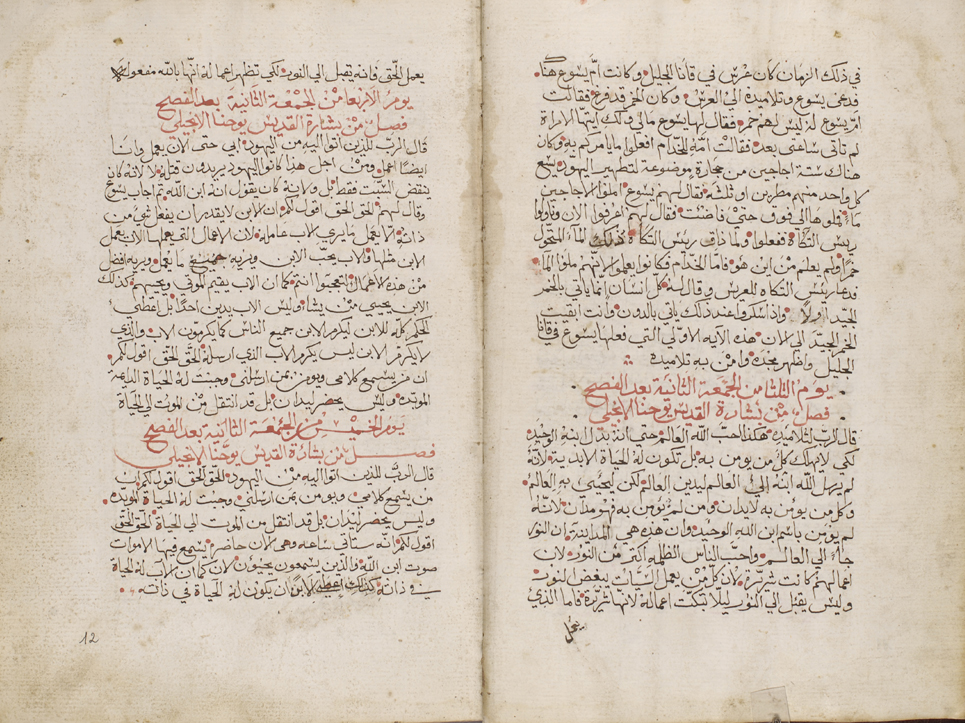 في ذلك الزمان كان عرس في قانا الجليل وكانت امّ يسوع هناك
فدعى يسوع وتلاميذه الى العرس وكان الخمر قد فرغ فقالت
امّ يسوع له ليس لهم خمر فقال لها يسوع مالي ولك ايتها الامراة
لم تاتى ساعتى بعد فقالت امّه للخدّام افعلوا ما يامركم به وكان
هناك ستة اجاجين من حجارة موضوعة لتطهير اليهود يسع
كل واحد منهم مطرين او ثلثة فقال لهم يسوع املوا الاجاجين
ماءً فملوها الى فوق حتى فاضت فقال لهم اغرفوا الان وناولوا
ريس التكاة ففعلوا ولما ذاق ريس التكاة ذلك الماء المتحول
خمراً ولم يعلم من اين هو فاما الخدّام فكانوا يعلموا لانهم ملوا الما
فدعا ريس التكاه للعريس وقال له كل انسان انما ياتي بالخمر
الجيّد اولاً واذا سكروا عند ذلك ياتي بالدون وانت ابقيت
الخمر الجيّد الى الان هذه الايه الاولي التي فعلها يسوع في قانا
الجليل واظهر مجده وامن به تلاميذه
يوم الثلثا من الجمعة الثانية بعد الفصح
فصل من بشارة القديس يوحنا الانجيلي
قال الرب لتلاميذه هكذا احبّ الله العالم حتي انه بذل ابنه الوحيد
لكي لا يهلك كل من يومن به بل تكون له الحياة الابدية لانه
لم يرسل الله ابنه الي العالم ليدين العالم لكن ليحيى به العالم
وكل من يومن به لا يدان ومن لم يومن به فهو مدان لانه
لم يومن باسم ابن الله الوحيد وان هذه هي المداينة ان النور
جاء الي العالم واحبّ الناس الظلمه اكثر من النور لان
اعمالهم كانت شريره لان كل من يعمل السيّات يبغض النور
وليس يقبل الي النور ليلا تبكت اعماله لانها شريرة فاما الذي
يعمل
يعمل الحق فانه يقبل الي النور لكي تظهر اعماله انها بالله مفعوله
يوم الاربعا من الجمعة الثانية بعد الفصح
فصل من بشارة القديس يوحنا الانجيلي
قال الرب للذين اتوا اليه من اليهود ابي حتى الان يعمل وانا
ايضا اعمل ومن اجل هذا كانوا اليهود يريدون قتله لا لانه كان
ينقض السبت فقط بل ولانه كان يقول انه ابن الله ثم اجاب يسوع
وقال لهم الحق الحق اقول لكم ان الابن لا يقدر ان يفعل شي من
ذاته الا يعمل ما يري الاب عامله لان الاعمال التي يعملها الاب يعمل
الابن مثلها والاب يحبّ الابن ويريه جميع ما يعمل ويريه افضل
من هذه الاعمال لتعجبوا انتم كما ان الاب يقيم الموتي ويحييهم كذلك
الابن يحيي من يشا وليس الاب يدين احداً بل اعطي
الحكم كله للابن ليكرم الابن جميع الناس كما يكرمون الاب والذي
لا يكرم الابن ليس يكرم الاب الذي ارسله الحق الحق اقول لكم
ان من يسمع كلامي ويومن بمن ارسلني وجبت له الحياة الدايمة
الموبّده وليس يحضر ليدان بل قد انتقل من الموت الى الحياة
يوم الخميس من الجمعة الثانية بعد الفصح
فصل من بشارة القديس يوحنا الانجيلي
قال الرب للذين اتوا اليه من اليهود الحق الحق اقول لكم ان
من يسمع كلامي ويومن بمن ارسلني وجبت له الحياة الموبده
وليس يحضر ليدان بل قد انتقل من الموت الى الحياة الحق الحق
اقول لكم انه ستاتي ساعه وهي الان حاضرة يسمع فيها الاموات
صوت ابن الله والذين يسمعون يحيون لان كما ان الاب له الحياة
في ذاته كذلك اعطا الابن ان يكون له الحياة في ذاته
12